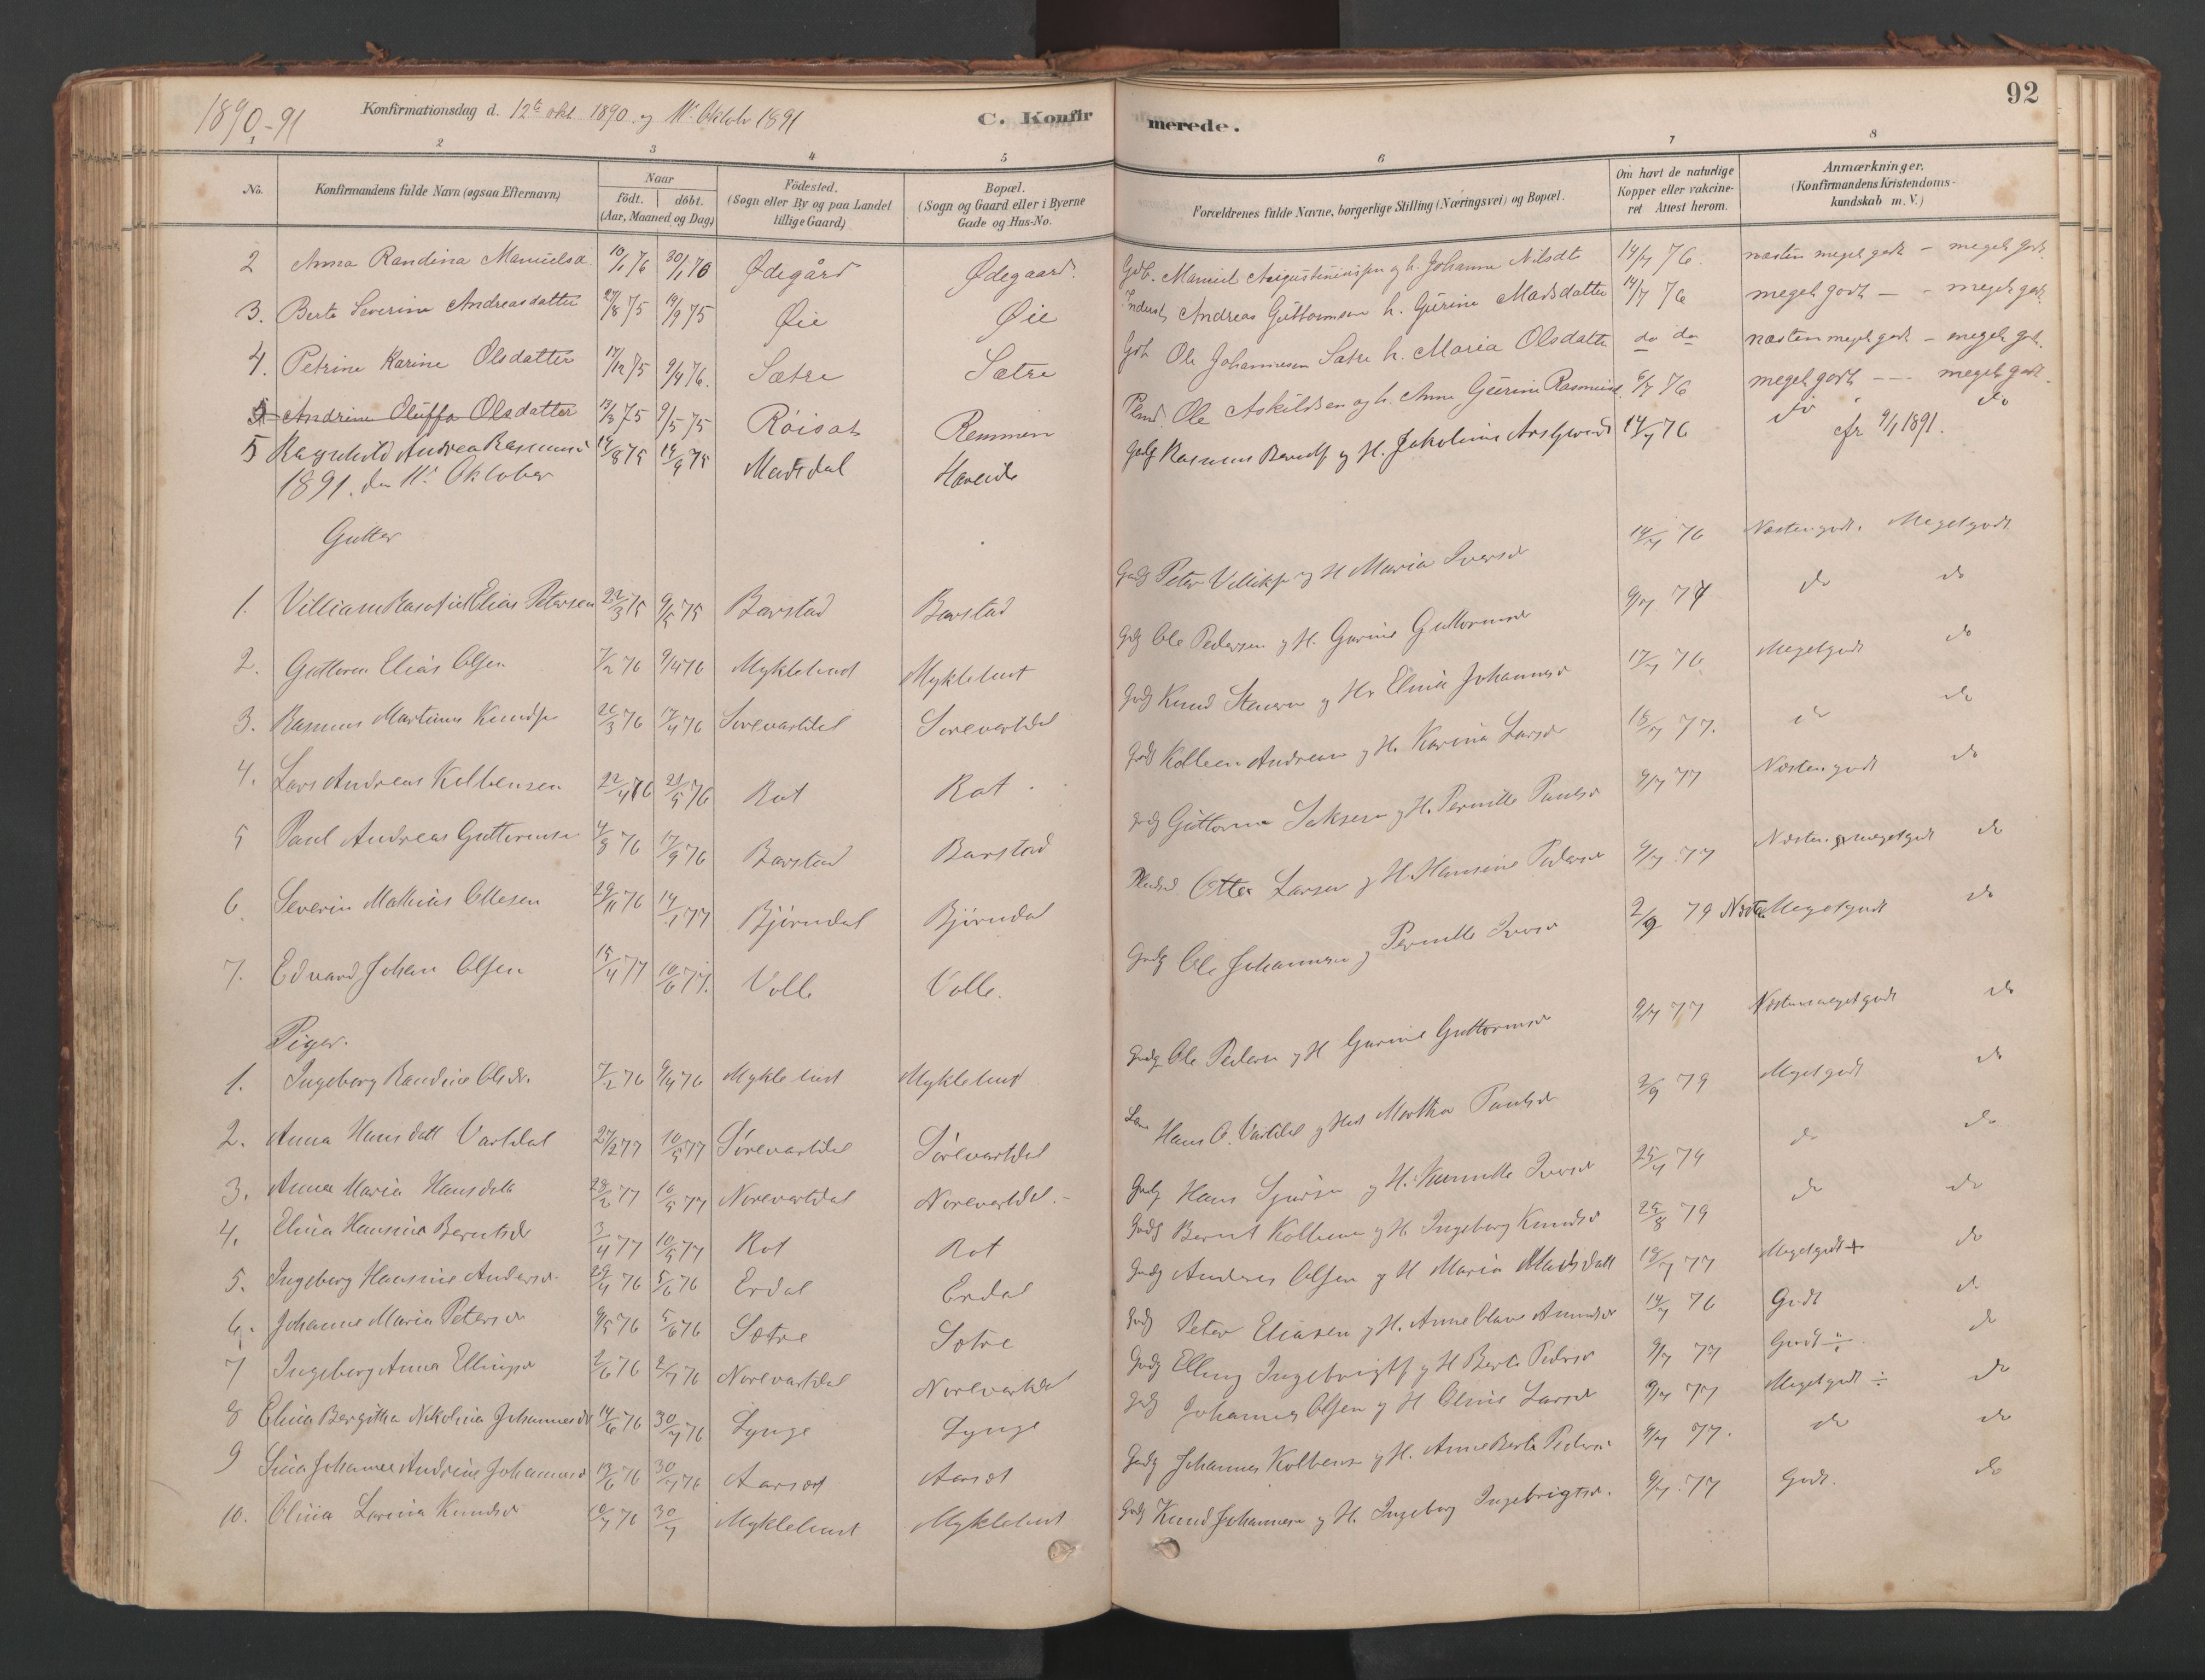 1890-91 Konfirmationsdag d. 12te okt 1890 og 11te Oktober 1891 C. Konfirmerede. 92
1 2 3 4 5 6 7 8
No. Konfirmandens fulde Navn (ogsaa Efternavn) Naar födt. döbt. (Aar, Maaned og Dag) Födested. (Sogn eller By og paa Landet tillige Gaard) Bopæl. (Sogn og Gaard eller i Byerne Gade og Hus-No. Forældrenes fulde Navne, borgerlige Stilling (Næringsvei) og Bopæl. Om havt de naturlige Kopper eller vakcineret Attest herom. Anmærkninger. (Konfirmandens Kristendomskundskab m. V.)
2 Anna Randina Manuelsd. 10/1 76 30/1 76 Ødegård Ødegaard. Gdb. Manuel Augustinussen og h. Johanne Nilsdtr 14/7 76. næsten meget godt - meget godt
3. Berte Severine Andreasdatter 27/8 75 19/9 75 Øie Øie Inderst Andreas Guttormsen h. Gurine Madsdatter 14/7 76 meget godt - - meget godt
4. Petrine Karine Olsdatter 17/12 75 9/4 76. Sætre Sætre Gdb Ole Johannesen Satre h. Maria Olsdatter do do næsten meget godt - meget gdt.
5 Andrine Oluffa Olsdatter 13/3 75 9/5 75 Röisat Remmen Plmd. Ole Askildsen og h. Anne Gurine Rasmusd. 6/7 76 meget godt --- meget godt.
5 Ragnhild Andrea Rasmusd 14/8 75 19/9 75 Madsdal Haveide Gdbg Rasmus Berntss og H. Jakobine 14/7 76 do do cfr 9/1 1891.
1891. den 11te Oktober
Gutter
1. Villiam Elias Petersen 22/3 75 9/5 75 Barstad Barstad Gdbg Peter Villiks og H Maria Iversd 14/7 76 Næsten godt. Meget godt
2. Guttorm Elias Olsen 7/2 76 9/4 76 Myklebust Myklebust Gdbg Ole Pedersen og H. Gurine Guttormsd 9/7 77 do do
3. Rasmus Martinus Knudsen 26/3 76 17/4 76 Sörevartdal Sörevartdal Gdbg Knud og Hs Elina Johannesd 17/7 76 Meget godt do
4. Lars Andreas Kolbensen 22/4 76 21/5 76 Rot Rot. Gdbg Kolben Andreasen og H. Karina Larsd 18/7 77. do do
5 Paul Andreas Guttormsen 4/8 76 17/9 76 Barstad Barstad Gdbg Guttorm Saksesen og H. Pernille Paulsd 9/7 77 Næsten godt do
6. Severin Mathias Ottesen 29/11 76 14/1 77 Bjørndal Bjørndal Pladsd Otter Larsen og H. Hansine Pedersd 9/7 77 Næsten meget godt do
7. Edvard Johan Olsen 15/4 77 10/6 77. Volle Volle. Gdbg Ole Johannesen og Pernille Iversd 2/9 79 Næsten Meget godt do
Piger.
1. Ingeborg Randine Olsdr. 7/2 76 9/4 76 Myklebust Myklebust Gdbg Ole Pedersen og H Gurine Guttormsd 9/7 77 Næsten meget godt do
2. Anna Hansdatt Vartdal 27/2 77 10/5 77 Sörevartdal Sörevartdal Hans O. Vartdal og Hst Martha Paulsd 2/9 79 Meget godt do
3. Anna Maria Hansdatt 28/2 77 10/5 77 Norevartdal Norevartdal.- Gdbg Hans Sjursen og H. Iversd 25/7 79 do do
4. Elina Hansine Berntsd 3/4 77 10/5 77 Rot Rot Gdbg Bernt Kolbensen og H Ingeborg Knudsd 25/8 79 do do
5. Ingeborg Hansine Andersd. 29/4 76 5/6 76 Erdal Erdal Gdbg Anders Olsen og H Maria Madsdatt 18/7 77 Meget godt + do
6. Johanne Maria Petersd 9/5 76 5/6 76 Sætre Sætre Gdbg Peter Eliasen og H. Anne Olave Amundsd 14/7 76 Godt do
7 Ingeborg Anna Ellingsd 2/6 76 2/7 76 Norevartdal Norevartdal Gdbg Elling Ingebrigts og H Berte Pedersd 9/7 77 Godt ÷ do
8 Elina Bergitha Nikolina Johannesd 14/6 76 30/7 76 Lynge Lynge Gdbg Johannes Olsen og H Oline Larsd 9/7 77 Meget godt ÷ do
9 Sina Johanne Andrine Johannesd 13/6 76 30/7 76 Aarset Aarset Gdbg Johannes Kolbens og H. Anne Berte Pedersd 9/7 77. do do
10. Olina Lovina Knudsd 10/7 76 30/7 Myklebust Myklebust Gdbg Knud Johannesen og H. Ingeborg Ingebrigtsd. 9/7 77 Godt. do